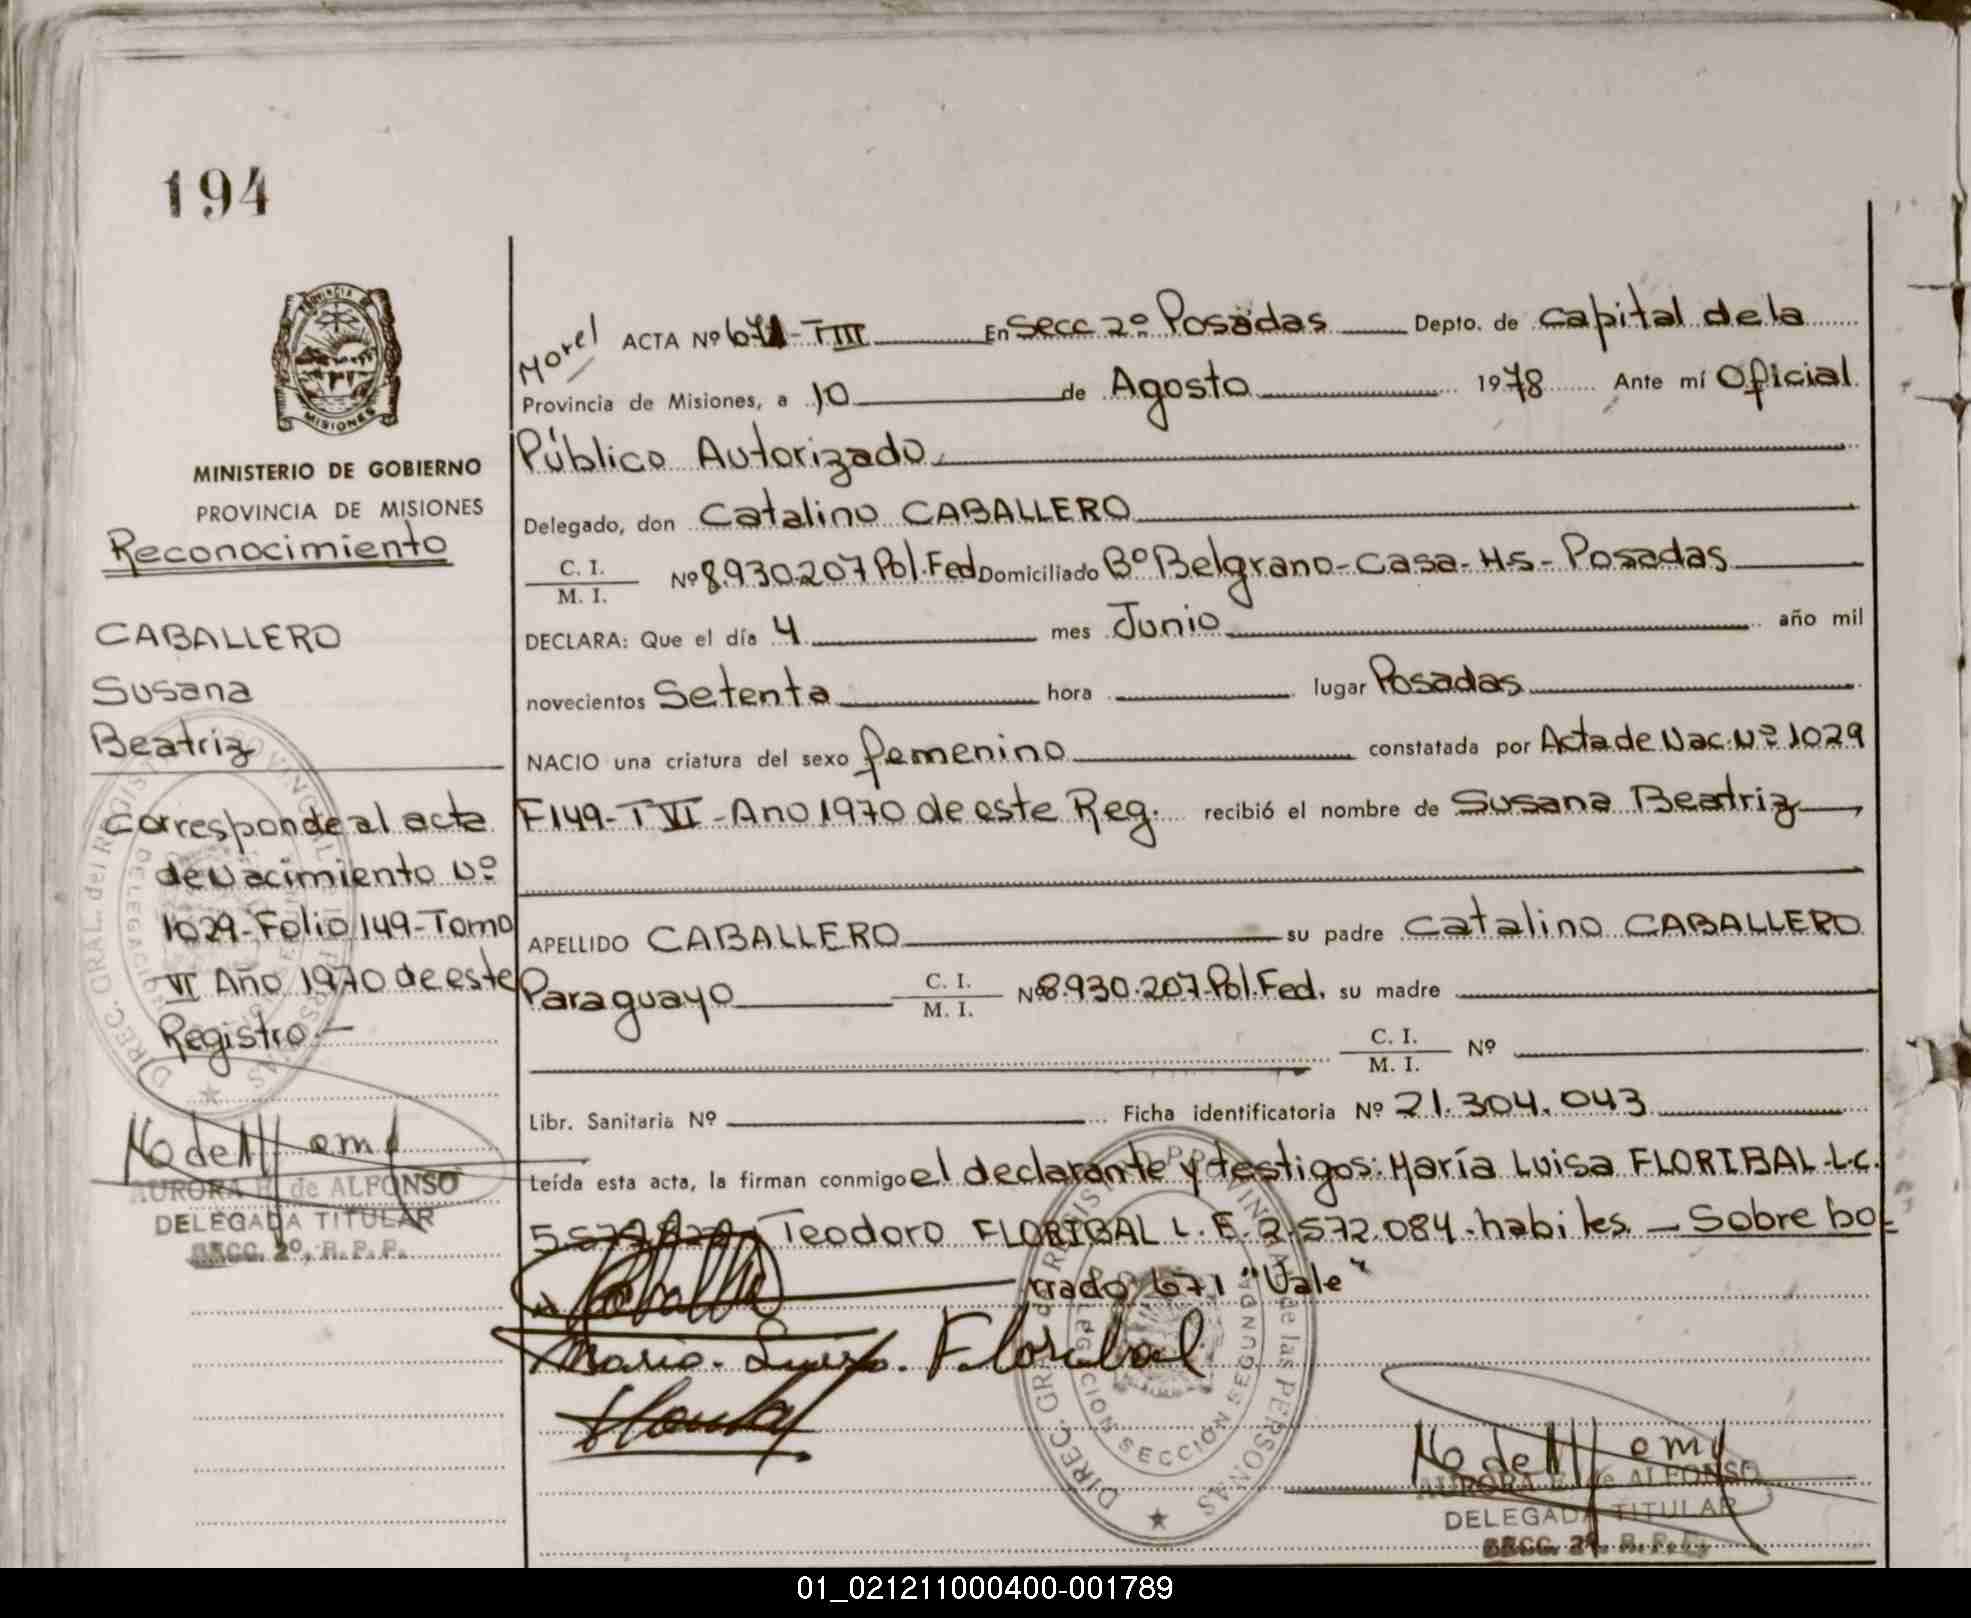 194
PROVINCIA DE
MISIONES
MINISTERIO DE GOBIERNO
PROVINCIA DE MISIONES
Reconocimiento
CABALLERO
Susana
Beatriz
Corresponde al acta
de Nacimiento Nº
1029-Folio 149-Tomo
VI Año 1970 de este
Registro.-
AURORA E. de ALFONSO
DELEGADA TITULAR
SECC. 2º. R. P. P.
Morel
ACTA Nº 671-TIII En Secc 2º Posadas Depto. de Capital de la
Provincia de Misiones, a 10 de Agosto 1978 Ante mí Oficial
Público Autorizado
Delegado, don Catalino CABALLERO
C. I.
M. I.
Nº 8.930.207 Pol. Fed Domiciliado Bº Belgrano-Casa-H5-Posadas
DECLARA: Que el día 4 mes Junio año mil
novecientos Setenta hora lugar Posadas
NACIO una criatura del sexo femenino constatada por Acta de Nac. Nº 1029
F149-TVI-Ano 1970 de este Reg. recibió el nombre de Susana Beatriz
APELLIDO CABALLERO su padre Catalino CABALLERO
Paraguayo C. I. M. I. Nº 8.930.207-Pol. Fed. su madre
C. I.
M. I.
Nº
Libr. Sanitaria Nº Ficha identificatoria Nº 21.304.043
Leída esta acta, la firman conmigo el declarante y testigos: María Luisa FLORIBAL-L.C.
Teodoro FLORIBAL L. E. 2.572.084-habiles. - Sobre bo-
rrado 671 "Vale"
Maria. Luisa. Floribal
DIREC. GRAL. del REGISTRO PROVINCIAL de las PERSONAS
DELEGACION SECCION SEGUNDA
AURORA E. de ALFONSO
DELEGADA TITULAR
SECC. 2º. R. P. P.
01_021211000400-001789